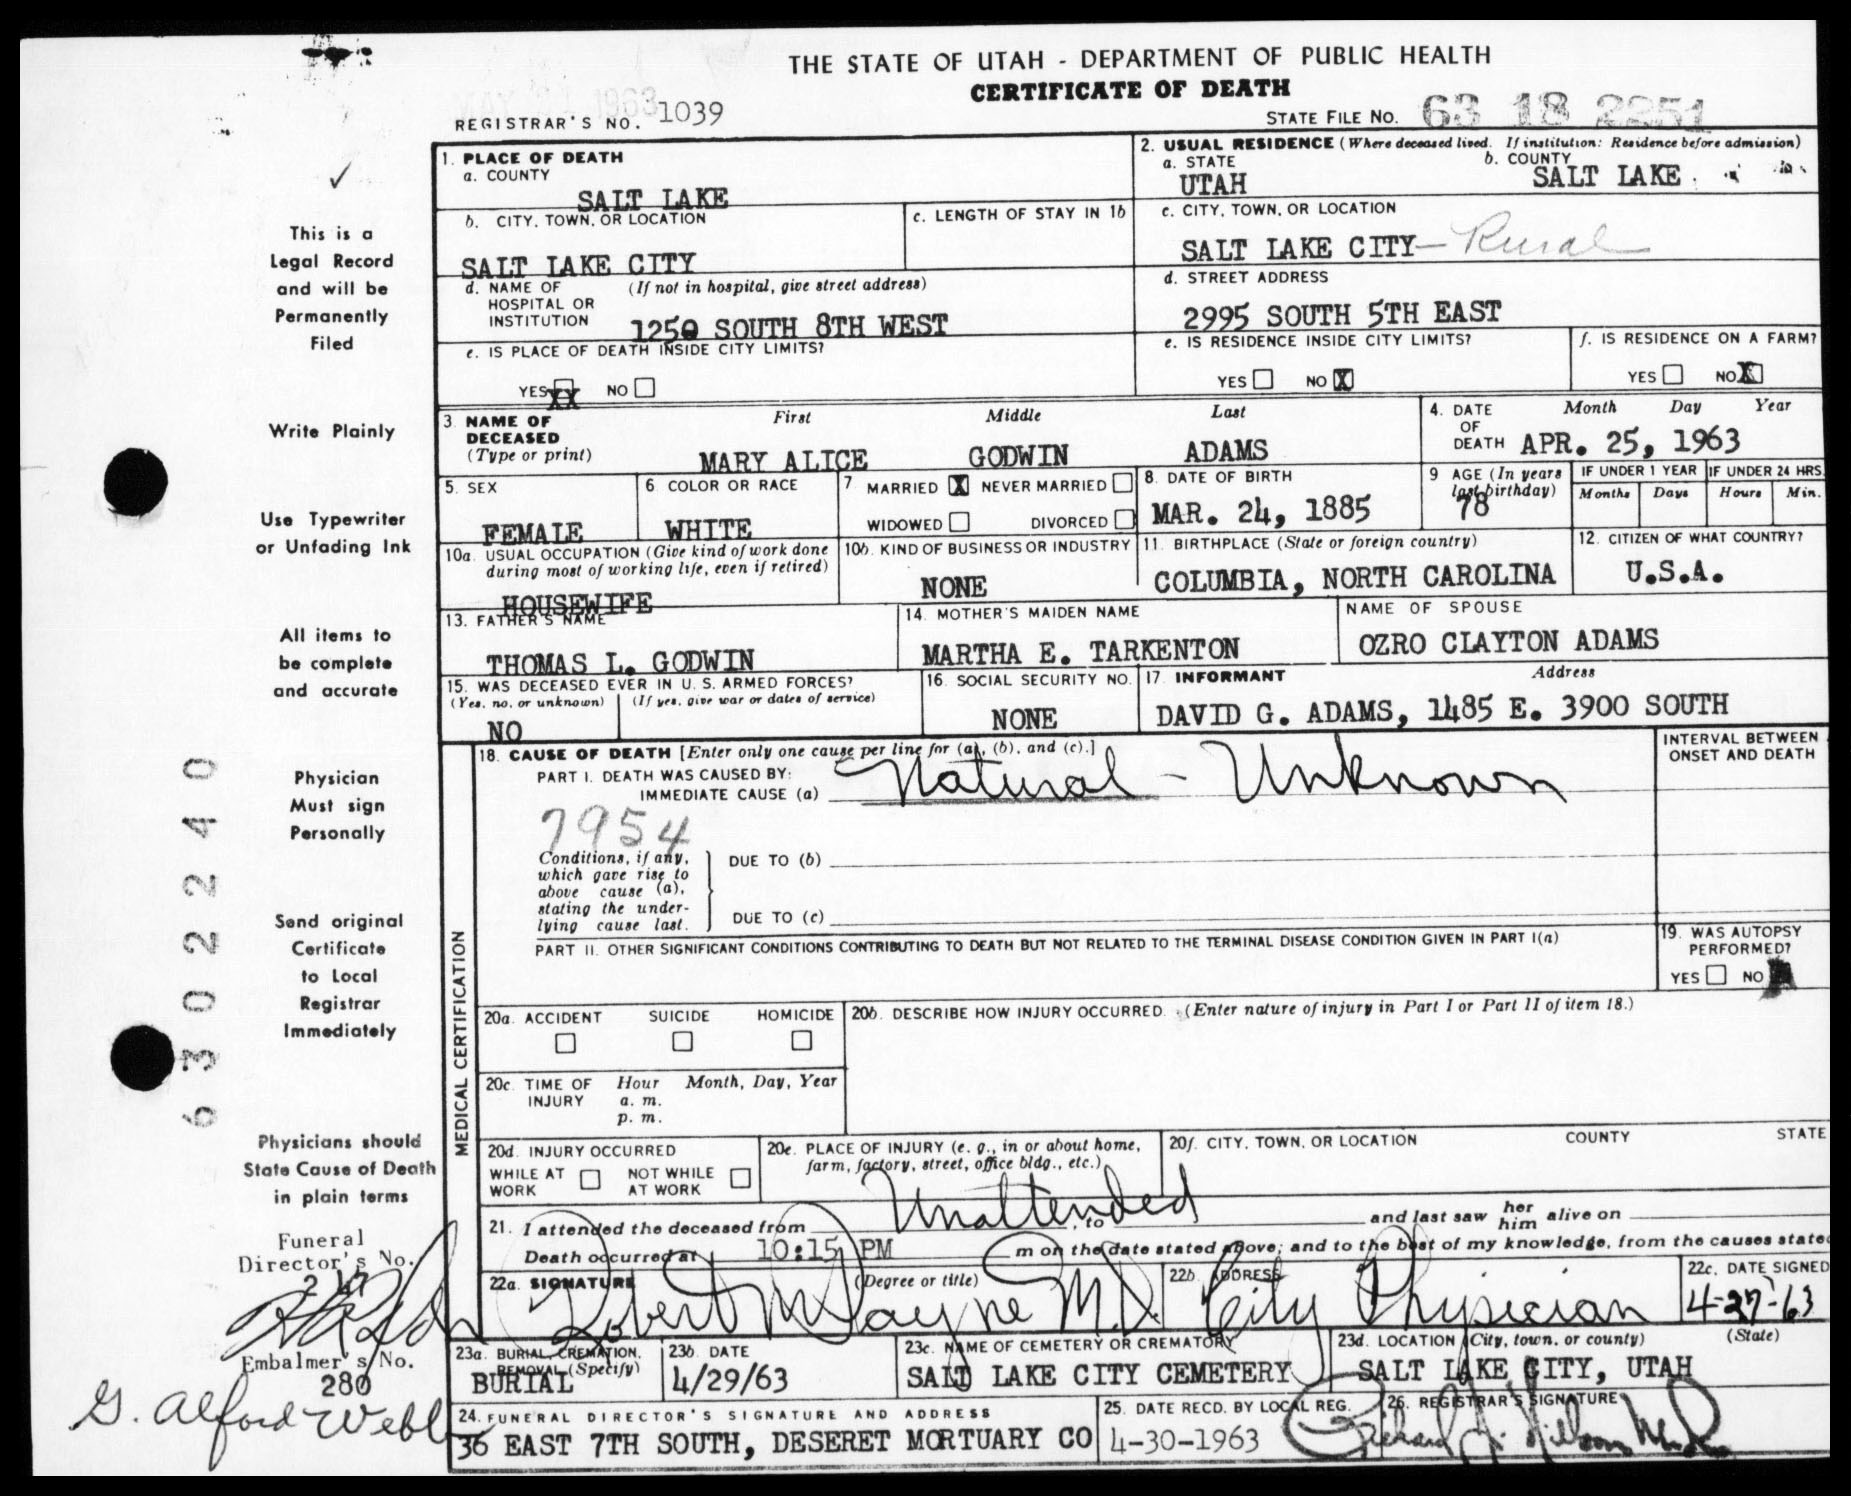 THE STATE OF UTAH - DEPARTMENT OF PUBLIC HEALTH
CERTIFICATE OF DEATH
1963
REGISTRAR'S NO. 1039
STATE FILE NO. 63 18 2251
1. PLACE OF DEATH
a. COUNTY
SALT LAKE
2. USUAL RESIDENCE (Where deceased lived. If institution: Residence before admission)
a. STATE b. COUNTY
UTAH SALT LAKE
b. CITY, TOWN, OR LOCATION
SALT LAKE CITY
c. LENGTH OF STAY IN 1b
c. CITY, TOWN, OR LOCATION
SALT LAKE CITY — Rural
d. NAME OF (If not in hospital, give street address)
HOSPITAL OR
INSTITUTION
1250 SOUTH 8TH WEST
d. STREET ADDRESS
2995 SOUTH 5TH EAST
e. IS PLACE OF DEATH INSIDE CITY LIMITS?
YES XX NO
e. IS RESIDENCE INSIDE CITY LIMITS?
YES NO X
f. IS RESIDENCE ON A FARM?
YES NO X
3. NAME OF DECEASED (Type or print)
First Middle Last
MARY ALICE GODWIN ADAMS
4. DATE OF DEATH Month Day Year
APR. 25, 1963
5. SEX
FEMALE
6. COLOR OR RACE
WHITE
7 MARRIED X NEVER MARRIED
WIDOWED DIVORCED
8. DATE OF BIRTH
MAR. 24, 1885
9 AGE (In years last birthday)
78
IF UNDER 1 YEAR IF UNDER 24 HRS.
Months Days Hours Min.
10a. USUAL OCCUPATION (Give kind of work done
during most of working life, even if retired)
HOUSEWIFE
10b. KIND OF BUSINESS OR INDUSTRY
NONE
11. BIRTHPLACE (State or foreign country)
COLUMBIA, NORTH CAROLINA
12. CITIZEN OF WHAT COUNTRY?
U.S.A.
13. FATHER'S NAME
THOMAS L. GODWIN
14. MOTHER'S MAIDEN NAME
MARTHA E. TARKENTON
NAME OF SPOUSE
OZRO CLAYTON ADAMS
15. WAS DECEASED EVER IN U.S. ARMED FORCES?
(Yes, no, or unknown) (If yes, give war or dates of service)
NO
16. SOCIAL SECURITY NO.
NONE
17. INFORMANT Address
DAVID G. ADAMS, 1485 E. 3900 SOUTH
MEDICAL CERTIFICATION
18. CAUSE OF DEATH [Enter only one cause per line for (a), (b), and (c).]
PART I. DEATH WAS CAUSED BY:
IMMEDIATE CAUSE (a) Natural - Unknown
INTERVAL BETWEEN
ONSET AND DEATH
7954
Conditions, if any,
which gave rise to
above cause (a),
stating the under-
lying cause last.
DUE TO (b)
DUE TO (c)
PART II. OTHER SIGNIFICANT CONDITIONS CONTRIBUTING TO DEATH BUT NOT RELATED TO THE TERMINAL DISEASE CONDITION GIVEN IN PART I(a)
19. WAS AUTOPSY
PERFORMED?
YES NO
20a. ACCIDENT SUICIDE HOMICIDE
20b. DESCRIBE HOW INJURY OCCURRED. (Enter nature of injury in Part I or Part II of item 18.)
20c. TIME OF INJURY Hour Month, Day, Year
a. m.
p. m.
20d. INJURY OCCURRED
WHILE AT WORK NOT WHILE AT WORK
20e. PLACE OF INJURY (e. g., in or about home,
farm, factory, street, office bldg., etc.)
20f. CITY, TOWN, OR LOCATION COUNTY STATE
21. I attended the deceased from Unattended, to and last saw her him alive on
Death occurred at 10:15 PM m on the date stated above; and to the best of my knowledge, from the causes state
22a. SIGNATURE (Degree or title)
Robert M Payne M.D.
22b. ADDRESS
City Physician
22c. DATE SIGNED
4-27-63
23a. BURIAL, CREMATION,
REMOVAL (Specify)
BURIAL
23b. DATE
4/29/63
23c. NAME OF CEMETERY OR CREMATORY
SALT LAKE CITY CEMETERY
23d. LOCATION (City, town, or county) (State)
SALT LAKE CITY, UTAH
24. FUNERAL DIRECTOR'S SIGNATURE AND ADDRESS
36 EAST 7TH SOUTH, DESERET MORTUARY CO
25. DATE RECD. BY LOCAL REG.
4-30-1963
26. REGISTRAR'S SIGNATURE
This is a
Legal Record
and will be
Permanently
Filed
Write Plainly
Use Typewriter
or Unfading Ink
All items to
be complete
and accurate
Physician
Must sign
Personally
Send original
Certificate
to Local
Registrar
Immediately
Physicians should
State Cause of Death
in plain terms
Funeral
Director's No.
Embalmer's No.
280
G. Alford Webb
6302240